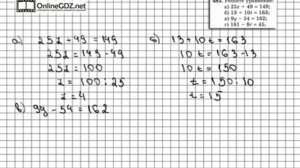 OnlineGDZ.net
Решите уравнение:
а) 25z + 49 = 149;
б) 13 + 10t = 163;
в) 9y - 54 = 162;
г) 181 - 8x = 45.
а) 25z + 49 = 149
25z = 149 - 49
25z = 100
z = 100 : 25
z = 4
в) 9y - 54 = 162
б) 13 + 10t = 163
10t = 163 - 13
10t = 150
t = 150 : 10
t = 15